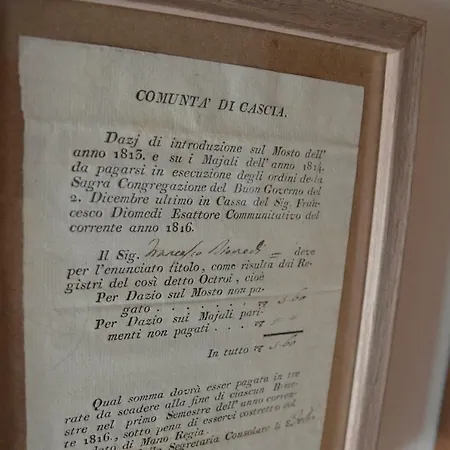 COMUNTA' DI CASCIA.
Dazj di introduzione sul Mosto dell'
anno 1813. e su i Majali dell'anno 1814.
da pagarsi in esecuzione degli ordini della
Sagra Congregazione del Buon Governo del
2. Dicembre ultimo in Cassa del Sig. Fran-
cesco Diomedi Esattore Communitativo del
corrente anno 1816.
Il Sig. Francesco = deve
per l'enunciato titolo, come risulta dai Re-
gistri del così detto Octroi, cioè
Per Dazio sul Mosto non pa-
gato . . . . . . . 5.60
Per Dazio sui Majali pari-
menti non pagati . . .
In tutto 5.60
Qual somma dovrà esser pagata in tre
rate da scadere alla fine di ciascun Bime-
stre nel primo Semestre dell'anno corren-
te 1816., sotto pena di esservi costretto col
di Mano Regia.
Segretaria Consolare li